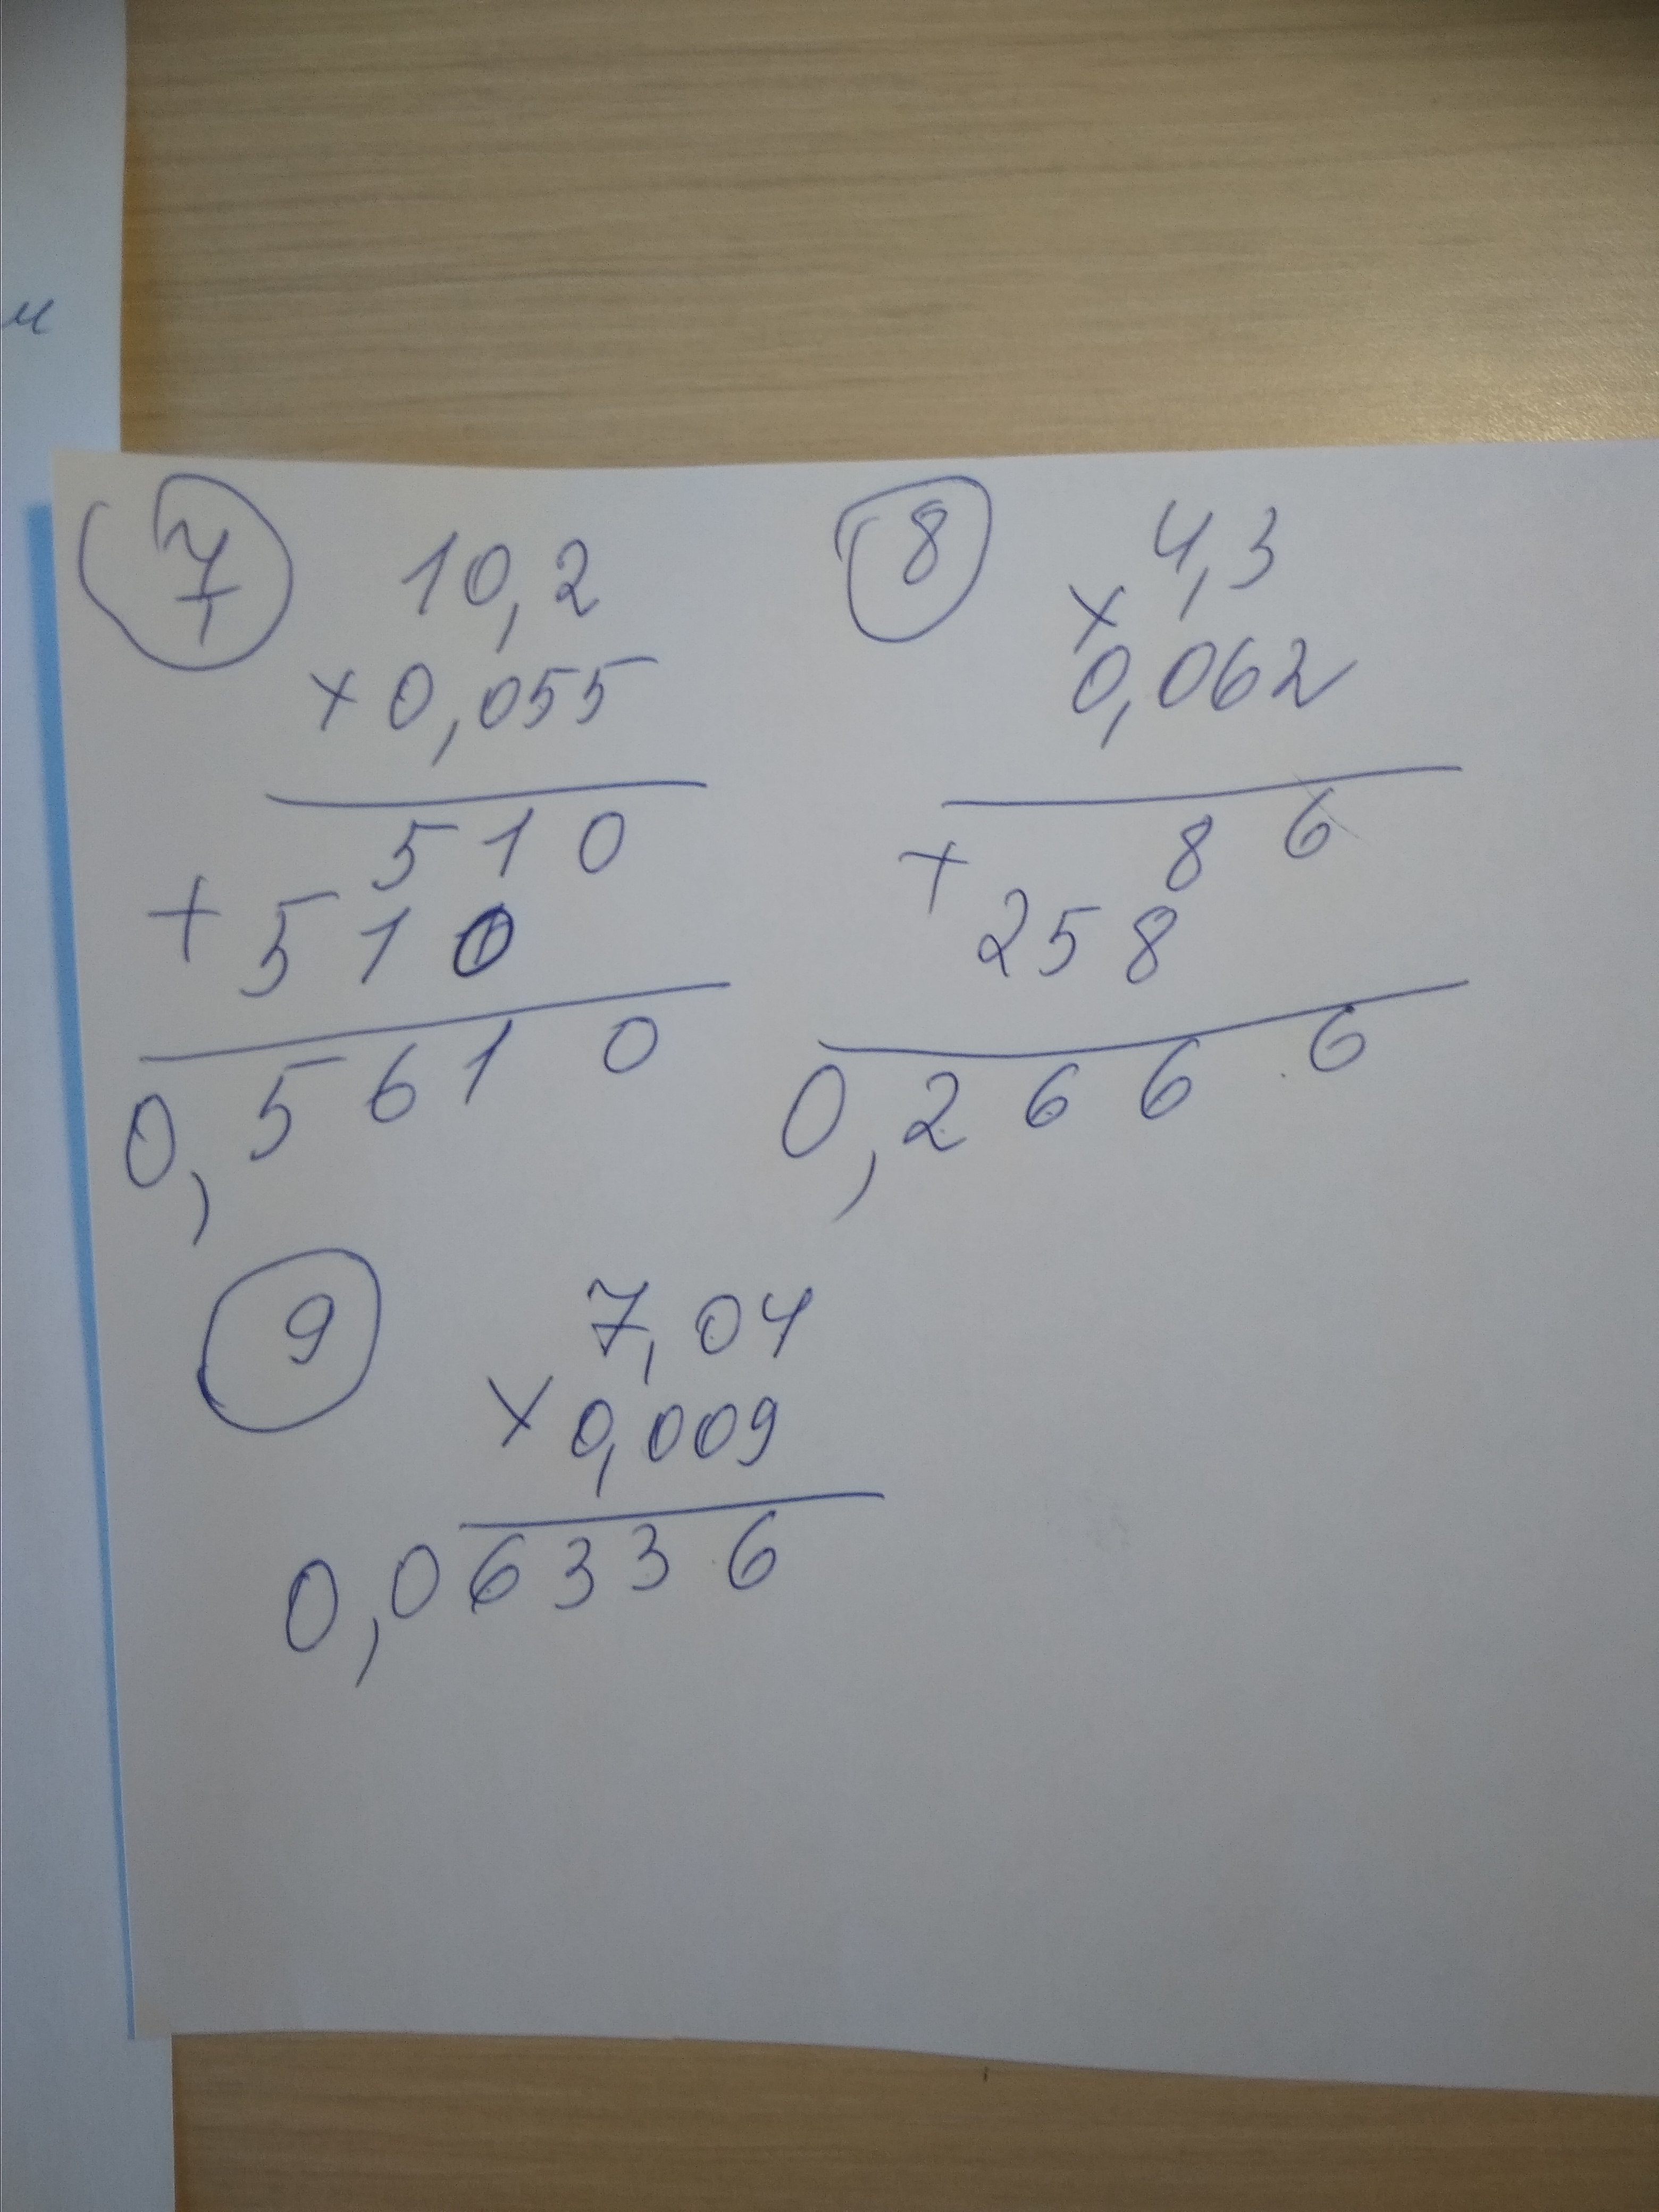 и
7
10,2
× 0,055
510
+ 510
0,5610
8
4,3
×
0,062
86
+
258
0,2666
9
7,04
× 0,009
0,06336